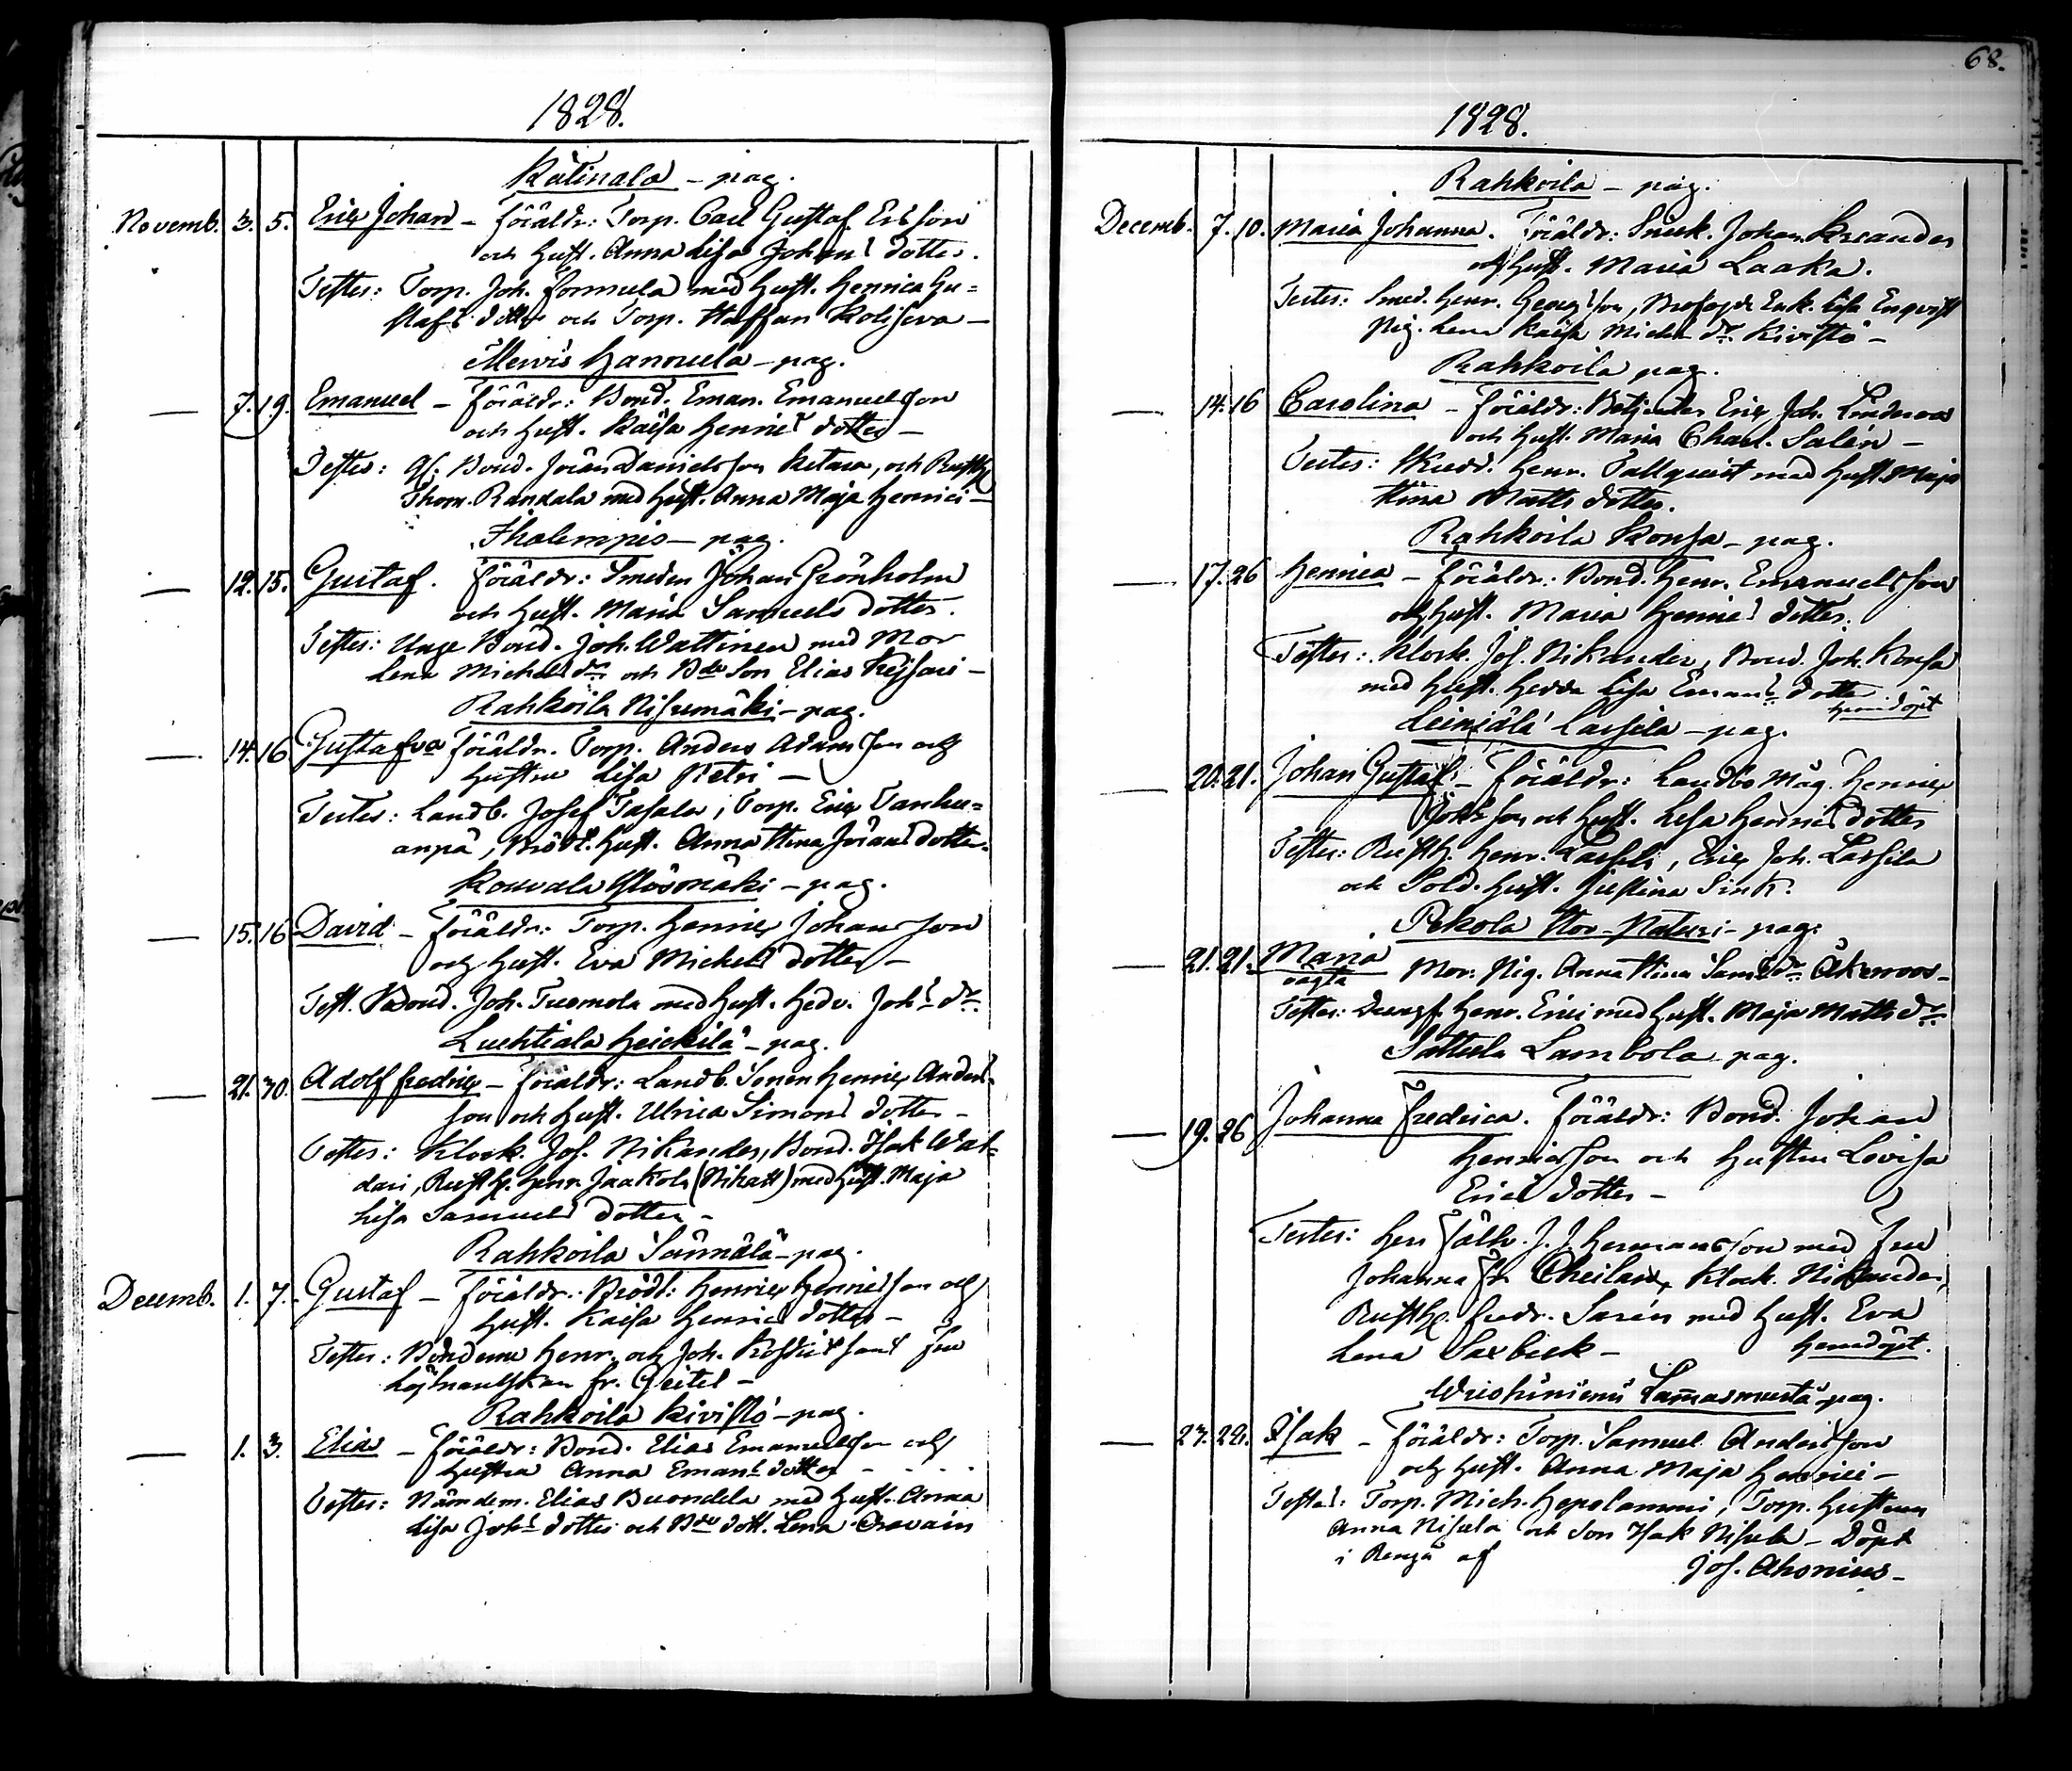 1828.
Kätinala – pag.
Novemb. 3. 5. Eric Johan – Föräldr: Torp. Carl Gustaf Ericsson
och Hust. Anna Lisa Johans dotter.
Testes: Torp. Joh. Formula med Hust. Henrica Gu=
stafs dotter och Torp. Staffan
Mervis Hannula – pag.
— 7. 19. Emanuel – Föräldr: Bond. Eman. Emanuelsson
och Hust. Kaisa Henrics dotter –
Testes: Bond. Jöran Danielsson och Rusth.
Thom. Randala med Hust. Anna Maja Henrici –
Ihalempis – pag.
— 12. 15. Gustaf. Föräldr: Smeden Johan Grönholm
och Hust. Maria Samuels dotter.
Testes: Unge Bond. Joh. Wattinen med Mor
Lena Michels dr och Bde Son Elias Keisari –
Rahkoila Nisumäki – pag.
— 14. 16 Gustafva Föräldr. Torp. Anders Adamsson och
Hustru Lisa Petri –
Testes: Landb. Josef Tasala, Torp. Eric Vanhu=
anpä, Hust. Anna Stina Jörans dotter.
Kouvala Ylösmäki – pag.
— 15. 16 David – Föräldr: Torp. Henric Johansson
och Hust. Eva Michels dotter –
Test. Bond. Joh. Tuomola med Hust. Hedv. Johs dr.
Luehtiala Heickilä – pag.
— 21. 30. Adolf Fredric – Föräldr: Landb. Sonen Henric Anders=
son och Hust. Ulrica Simons dotter –
Testes: Klock. Jos. Nikander, Bond. Isak
dari, Rusth. Henr. Jaakola (Nikatt) med Hust. Maja
Lisa Samuels dotter –
Rahkoila Sännälä – pag.
Decemb. 1. 7. Gustaf – Föräldr: Henric Henricsson och
Hust. Kaisa Henrics dotter –
Testes: Bönderne Henr. och Joh. samt Fru
Löjtnantskan fr. Geitel –
Rahkoila Kivistö – pag.
— 1. 3. Elias – Föräldr: Bond. Elias Emanuelsson och
Hustru Anna Emans dotter –
Testes: Nämdem. Elias med Hust. Anna
Lisa Johs dotter och Bde dott. Lena
68.
1828.
Rahkoila – pag.
Decemb. 7. 10. Maria Johanna. Föräldr: Snick. Johan
och Hust. Maria Laaka.
Testes: Smed. Henr. Georgsson, Enk. Lisa Enqvist
Pig. Lena Kaisa Michels dr. Kivistö –
Rahkoila pag.
— 14. 16 Carolina – Föräldr: Betjenten Eric Joh. Linderoos
och Hust. Maria Charl. Salén –
Testes: Skredd. Henr. Tallqvist med Hust. Maja
Stina Matts dotter.
Rahkoila Konsa – pag.
— 17. 26 Henrica – Föräldr: Bond. Henr. Emanuelsson
och Hust. Maria Henrics dotter.
Testes: Klock. Jos. Nikander, Bond. Joh. Konsa
med Hust. Hedda Lisa Emans dotter. Hemdöpt
Leinjälä Lassila – pag.
— 20. 21. Johan Gustaf – Föräldr: Landbo Måg. Henric
Johsson och Hust. Lisa Henrics dotter
Testes: Rusth. Henr. Lassila, Eric Joh. Lassila
och Sold. Hust. Justina Sink.
Pekola Stor-Naturi – pag.
— 21. 21. Maria oägta Mor. Pig. Anna Stina Sams dr. Åkerroos –
Testes: Henr. Erici med Hust. Maja Matts dr.
Sattula Lambola pag.
— 19. 26 Johanna Fredrica. Föräldr: Bond. Johan
Henricsson och Hustru Lovisa
Erics dotter –
Testes: Herr J. J. Hermansson med Fru
Johanna Klock. Nikander,
Rusth. Fredr. Sarén med Hust. Eva
Lena Saxbeck – Hemdöpt.
Lamasmusta pag.
— 27. 29. Isak – Föräldr: Torp. Samuel Andersson
och Hust. Anna Maja Henrici –
Testes: Torp. Mich. Hepolammi, Torp. Hustrun
Anna Nisula och Son Isak Nisula – Döpt
i Rengå af
Jos. Ahonius –